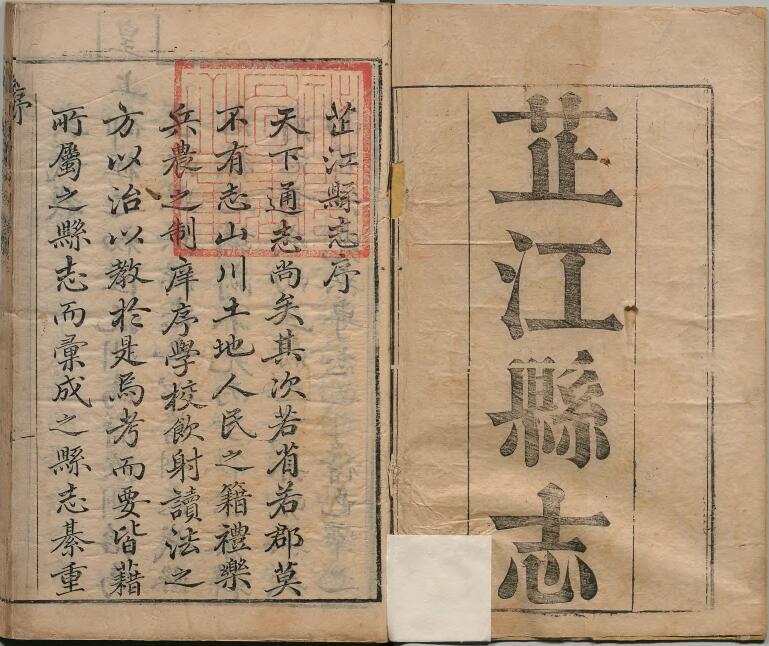 芷江縣志
芷江縣志序
天下通志尚矣其次若省若郡莫
不有志山川土地人民之籍禮樂
兵農之制庠序學校飲射讀法之
方以治以教於是焉考而要皆藉
所屬之縣志而彙成之縣志綦重
序
一